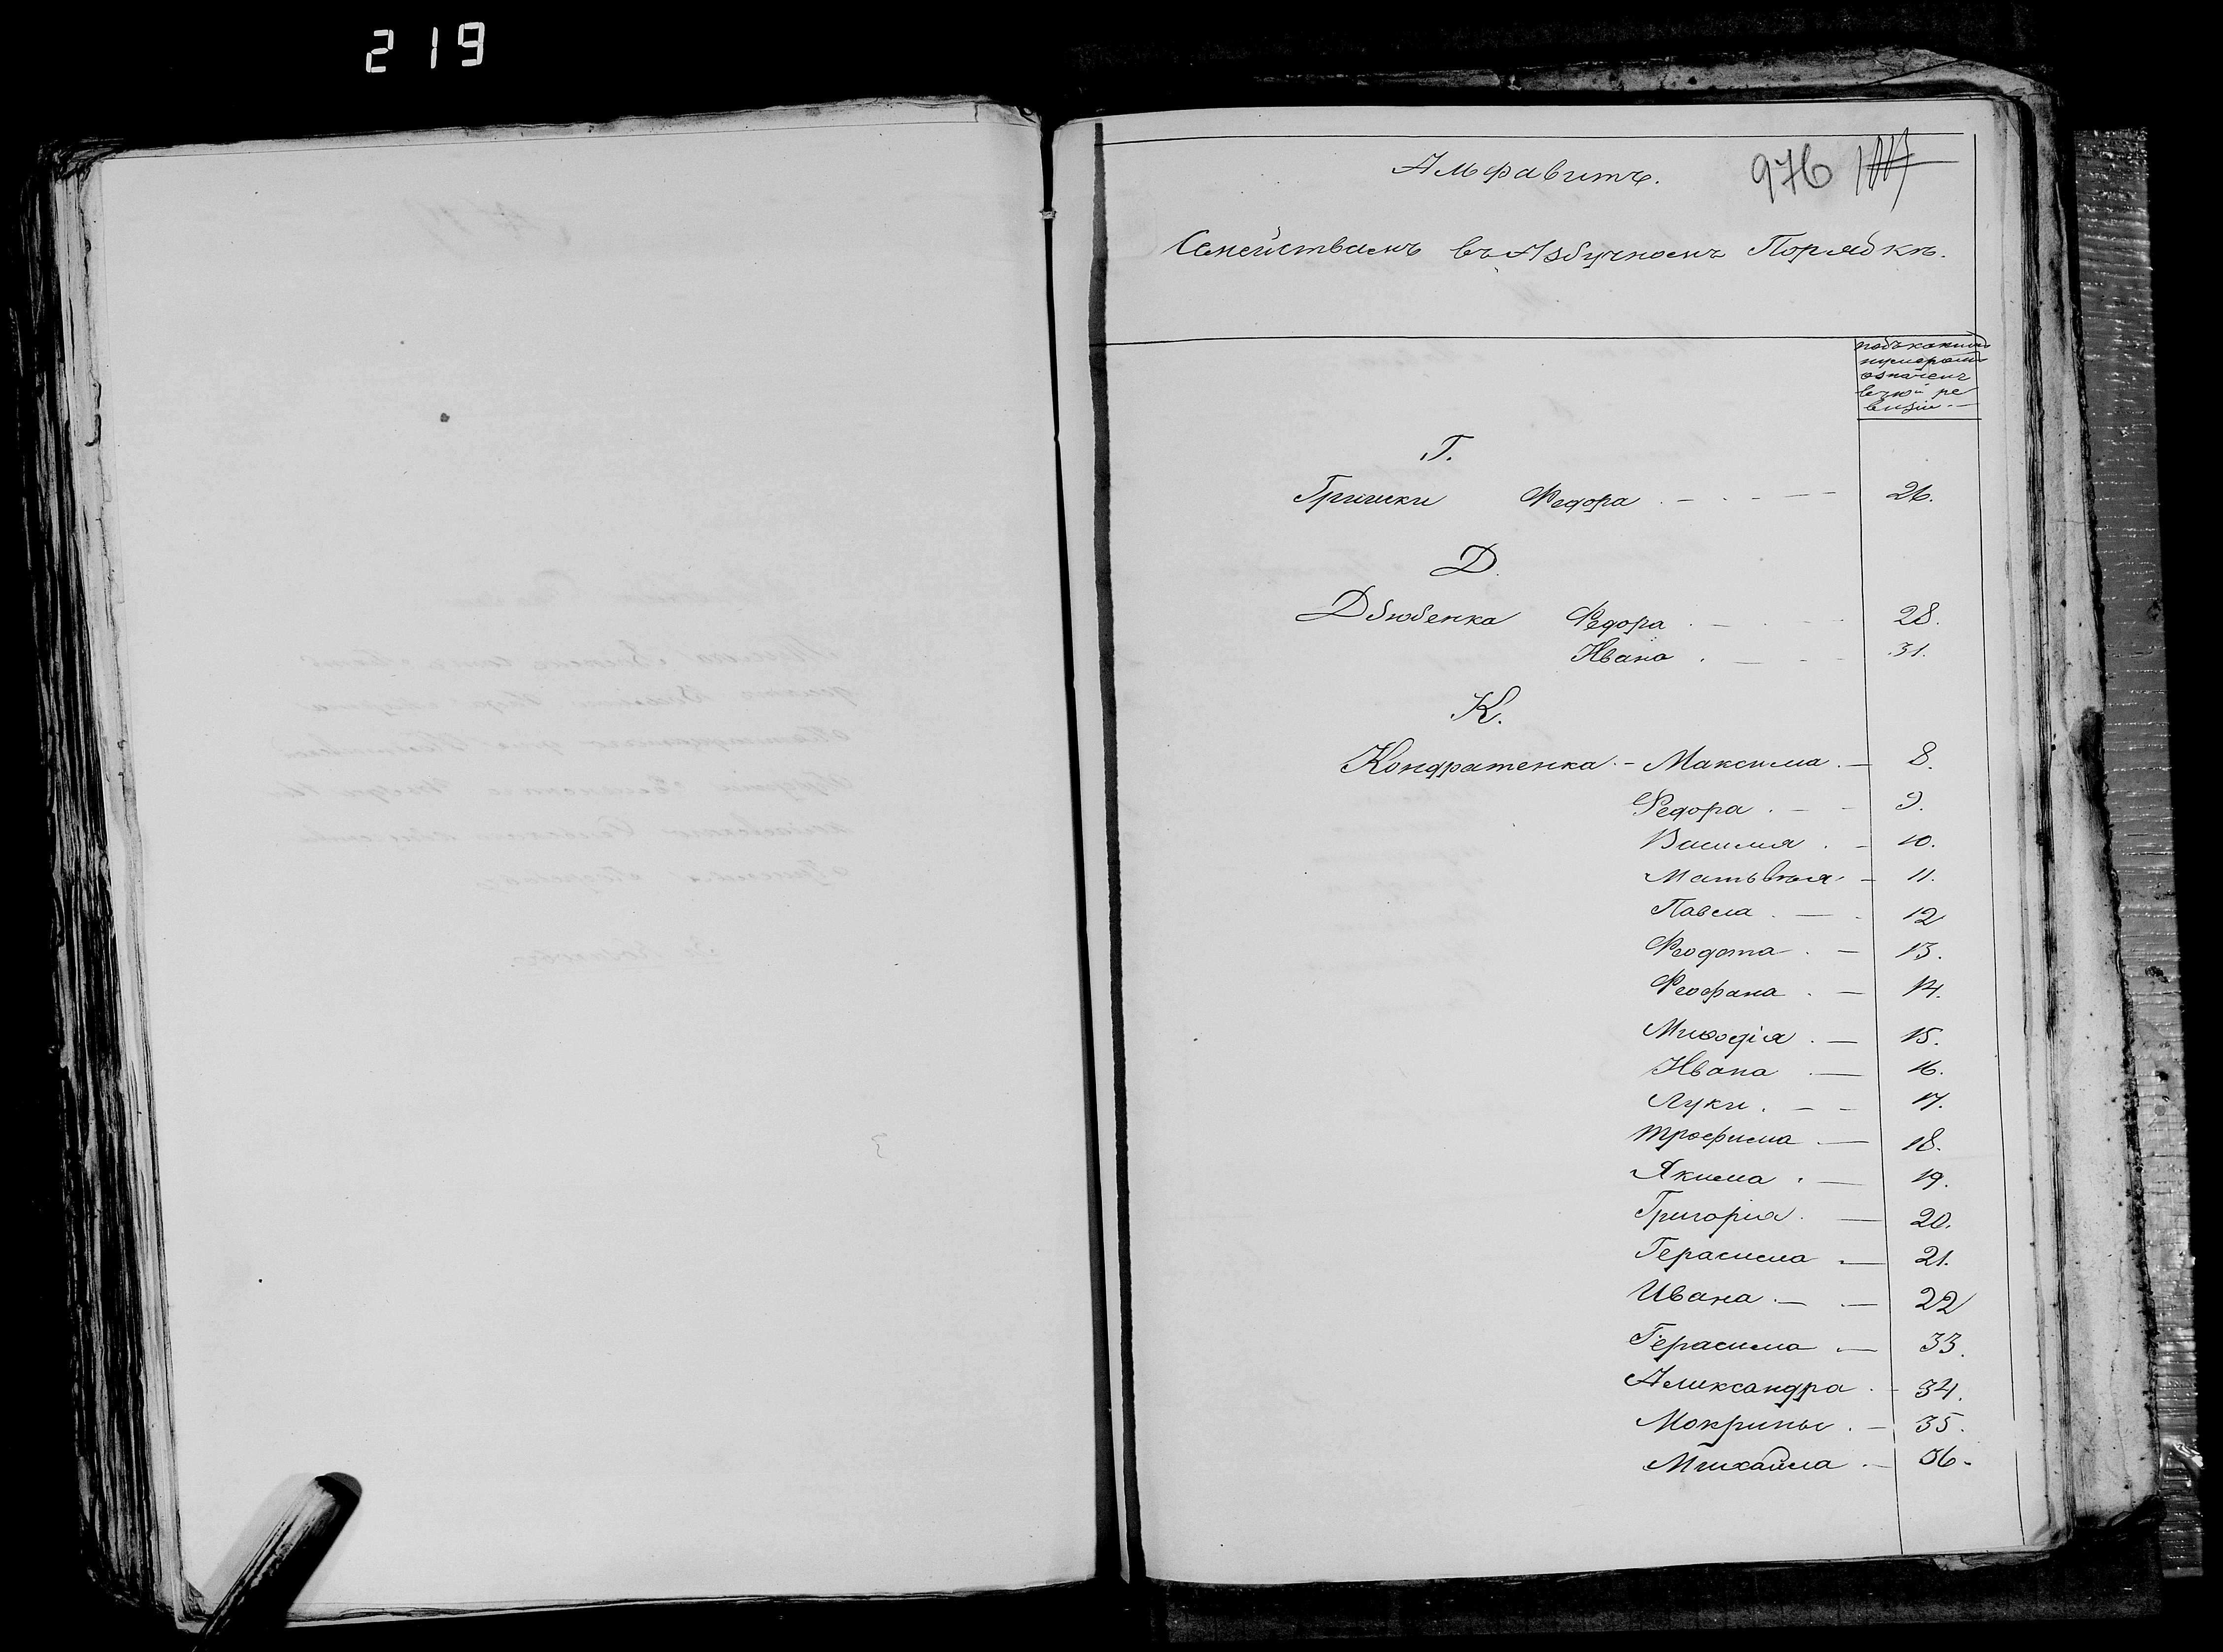 219
976
Алфавитъ.
Семействамъ въ Азбучномъ Порядкѣ.
подъ какимъ
нумеромъ
означенъ
въ 10й ре
визіи.
Г.
Гришки Федора 26.
Д.
Федора 28.
Ивана 31.
К.
Кондратенка Максима 8.
Федора 9.
Василия 10.
Матьвѣя 11.
Павла 12
Феодота 13.
Феофана 14.
Мифодія 15.
Ивана 16.
Луки 17.
Трофима 18.
Якима 19.
Григория 20.
Герасима 21.
Ивана 22
Герасима 33.
Александра 34.
Мокрины 35.
Михайла 36.